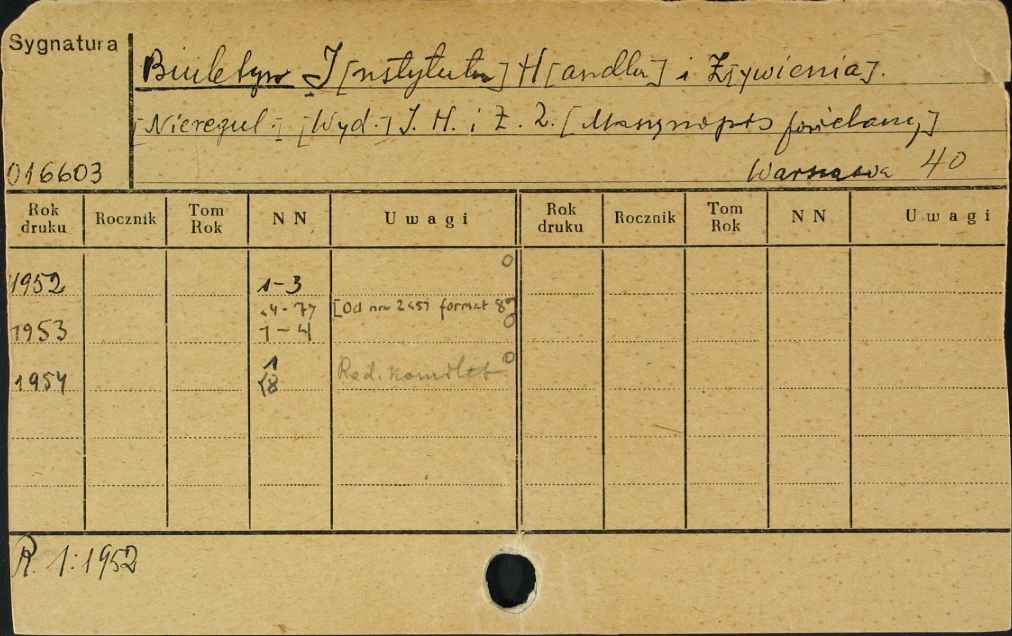 Sygnatura
Biuletyn I[nstytutu] H[andlu] i Ż[ywienia].
[Nieregul.] [Wyd.] I. H. i Ż. Z. [Maszynopis powielany]
016603 Warszawa 40
Rok druku Rocznik Tom Rok NN Uwagi Rok druku Rocznik Tom Rok NN Uwagi
0
1952 1-3
[Od nru format 8
0
1953 1-4
0
1
1954 Red. komplet
R. 1: 1952